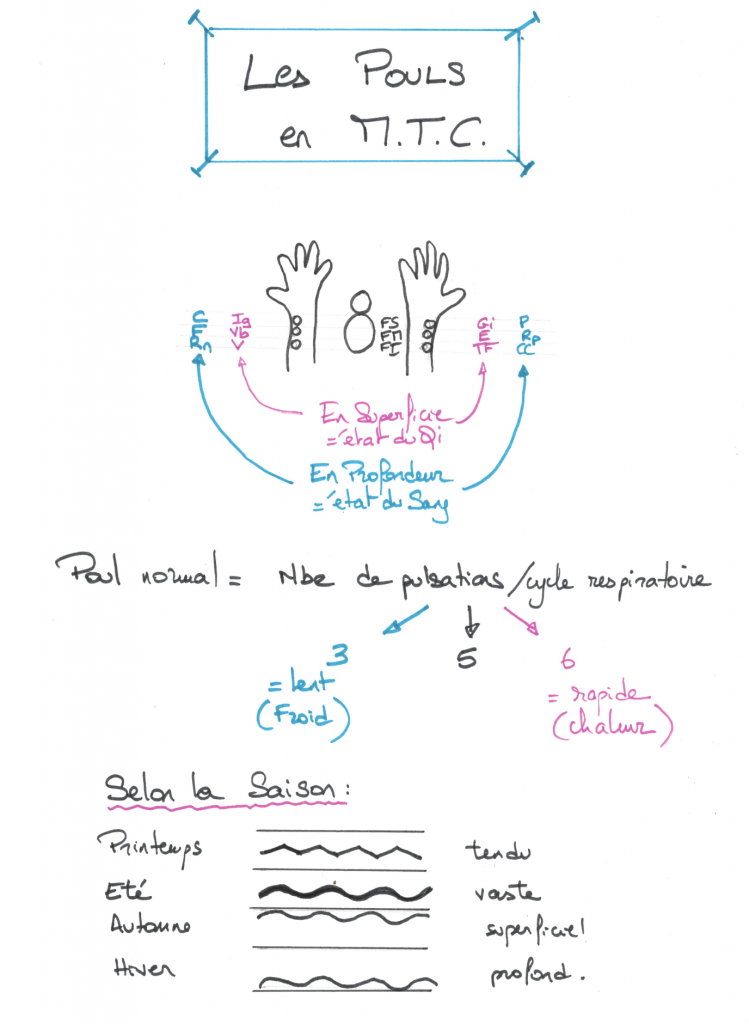 Les POULS
en M.T.C.
C Ig FS Gi P
Vb FM E Rp
Rn V FI TF CC
En Superficie
= état du Qi
En Profondeur
= état du Sang
Poul normal = Nbe de pulsations /cycle respiratoire
3 5 6
= lent = rapide
(Froid) (chaleur)
Selon la Saison :
Printemps tendu
Eté vaste
Automne superficiel
Hiver profond.